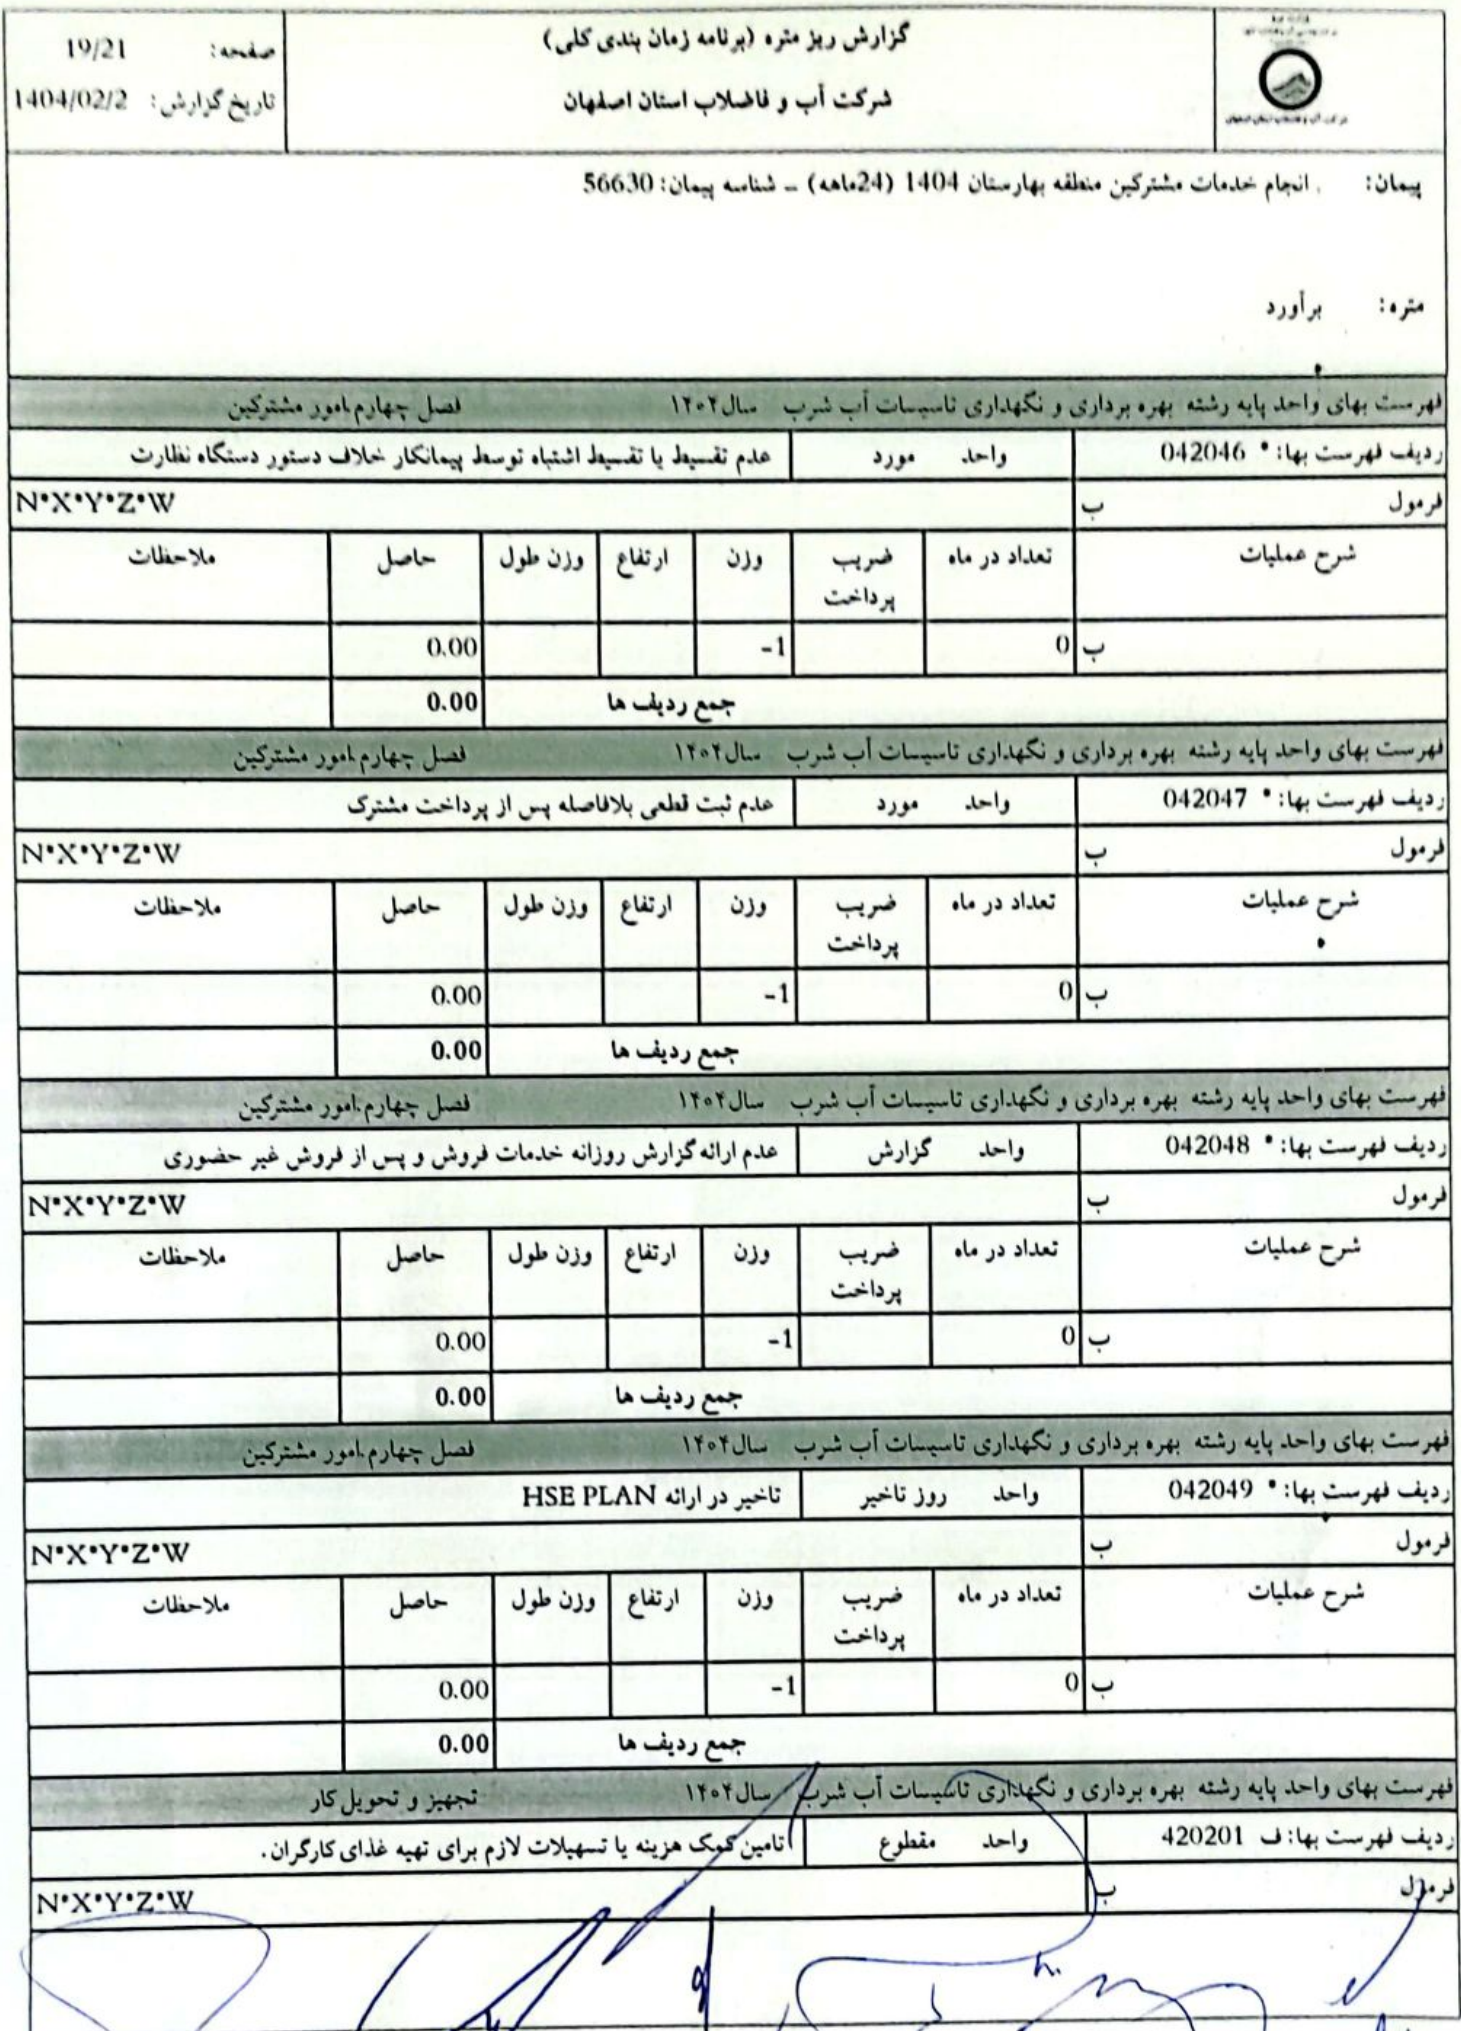 گزارش ریز متره (برنامه زمان بندی کلی)
شرکت آب و فاضلاب استان اصفهان
صفحه: 19/21
تاریخ گزارش: 1404/02/2
پیمان: انجام خدمات مشترکین منطقه بهارستان 1404 (24ماهه) ـ شناسه پیمان: 56630
متره: برآورد
فهرست بهای واحد پایه رشته بهره برداری و نگهداری تاسیسات آب شرب سال۱۴۰۴ فصل چهارم.امور مشترکین
ردیف فهرست بها: * 042046 واحد مورد عدم تقسیط یا تقسیط اشتباه توسط پیمانکار خلاف دستور دستگاه نظارت
فرمول ب N*X*Y*Z*W
شرح عملیات تعداد در ماه ضریب پرداخت وزن ارتفاع وزن طول حاصل ملاحظات
ب 0 -1 0.00
جمع ردیف ها 0.00
فهرست بهای واحد پایه رشته بهره برداری و نگهداری تاسیسات آب شرب سال۱۴۰۴ فصل چهارم.امور مشترکین
ردیف فهرست بها: * 042047 واحد مورد عدم ثبت قطعی بلافاصله پس از پرداخت مشترک
فرمول ب N*X*Y*Z*W
شرح عملیات تعداد در ماه ضریب پرداخت وزن ارتفاع وزن طول حاصل ملاحظات
ب 0 -1 0.00
جمع ردیف ها 0.00
فهرست بهای واحد پایه رشته بهره برداری و نگهداری تاسیسات آب شرب سال۱۴۰۴ فصل چهارم.امور مشترکین
ردیف فهرست بها: * 042048 واحد گزارش عدم ارائه گزارش روزانه خدمات فروش و پس از فروش غیر حضوری
فرمول ب N*X*Y*Z*W
شرح عملیات تعداد در ماه ضریب پرداخت وزن ارتفاع وزن طول حاصل ملاحظات
ب 0 -1 0.00
جمع ردیف ها 0.00
فهرست بهای واحد پایه رشته بهره برداری و نگهداری تاسیسات آب شرب سال۱۴۰۴ فصل چهارم.امور مشترکین
ردیف فهرست بها: * 042049 واحد روز تاخیر تاخیر در ارائه HSE PLAN
فرمول ب N*X*Y*Z*W
شرح عملیات تعداد در ماه ضریب پرداخت وزن ارتفاع وزن طول حاصل ملاحظات
ب 0 -1 0.00
جمع ردیف ها 0.00
فهرست بهای واحد پایه رشته بهره برداری و نگهداری تاسیسات آب شرب سال۱۴۰۴ تجهیز و تحویل کار
ردیف فهرست بها: ف 420201 واحد مقطوع تامین کمک هزینه یا تسهیلات لازم برای تهیه غذای کارگران.
فرمول ب N*X*Y*Z*W